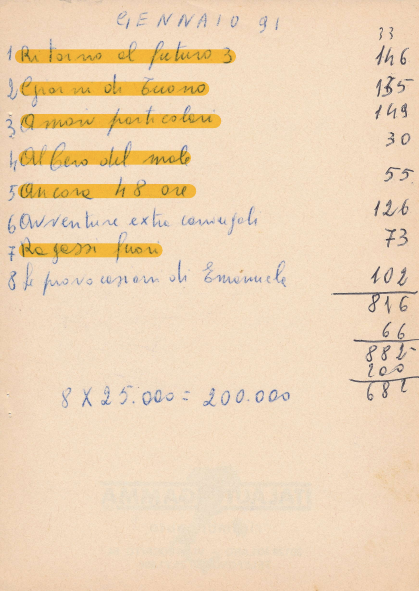 GENNAIO 91
33
1 Ritorno al futuro 3 146
2 Giorni di Tuono 135
3 Amori particolari 149
30
4 Albero del male
5 Ancora 48 ore 55
6 Avventure extra coniugali 126
7 Ragazzi fuori 73
8 Le provocazioni di Emanuele 102
816
66
882
200
8 X 25.000 = 200.000 682